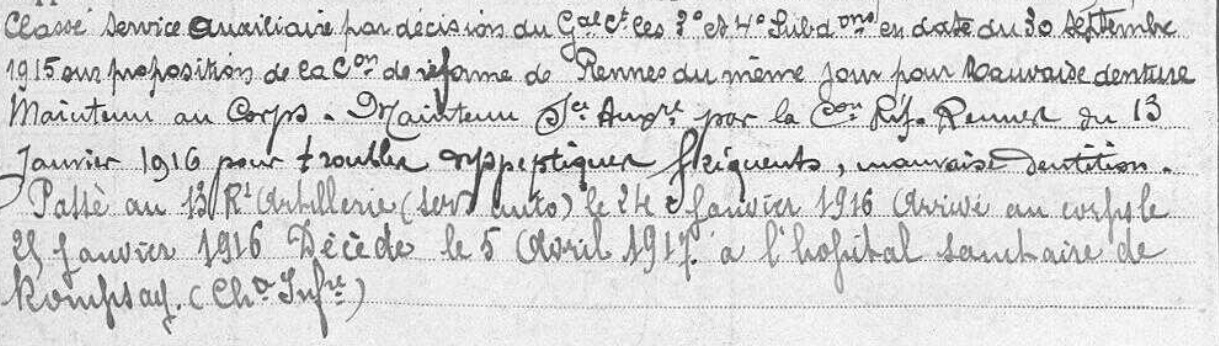 Classé service auxiliaire par décision du Gal Ct les 3e et 4e Subdons en date du 30 septembre
1915 sur proposition de la Con de réforme de Rennes du même jour pour Mauvaise denture
Maintenu au Corps. Maintenu Sce Auxre par la Con Réf. Rennes du 13
Janvier 1916 pour troubles dyspeptiques fréquents, mauvaise dentition.
Passé au 13 Rt Artillerie (Serv auto) le 24 Janvier 1916 Arrivé au corps le
25 Janvier 1916 Décédé le 5 Avril 1917. à l'hopital sanitaire de
Rompsay. (Chte Infre)